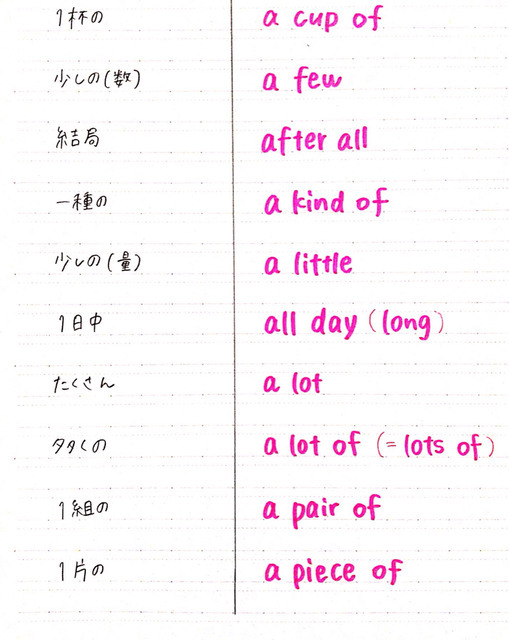 1杯の a cup of
少しの(数) a few
結局 after all
一種の a kind of
少しの(量) a little
1日中 all day (long)
たくさん a lot
多くの a lot of (=lots of)
1組の a pair of
1片の a piece of